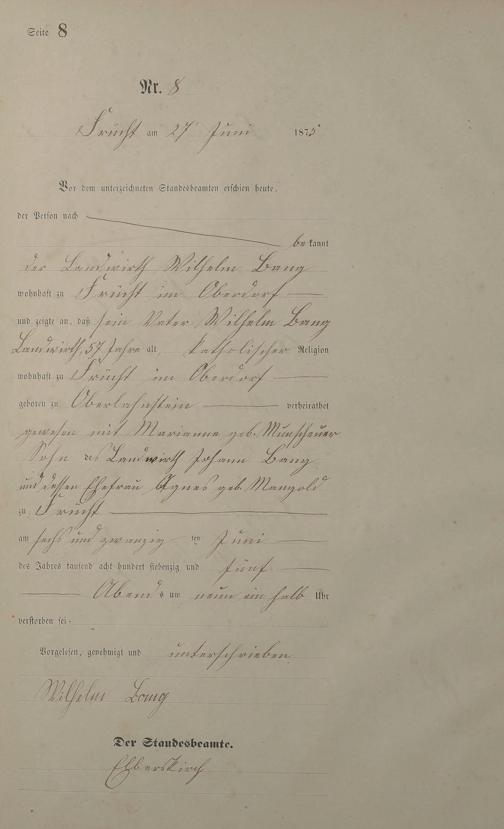 Seite 8
Nr. 8
Frücht am 27 Juni 1875
Vor dem unterzeichneten Standesbeamten erschien heute,
der Person nach
bekannt
der Landwirth Wilhelm Bang
wohnhaft zu Frücht im Oberdorf
und zeigte an, daß sein Vater Wilhelm Bang
Landwirth, 57 Jahre alt, katholischer Religion
wohnhaft zu Frücht im Oberdorf
geboren zu Oberlahnstein verheirathet
gewesen mit Marianne geb. Munscheuer
Sohn des Landwirth Johann Bang
und dessen Ehefrau Agnes geb. Mangold
zu Frücht
am sechs und zwanzig ten Juni
des Jahres tausend acht hundert siebenzig und fünf
Abends um neun ein halb Uhr
verstorben sei.
Vorgelesen, genehmigt und unterschrieben
Wilhelm Bang
Der Standesbeamte.